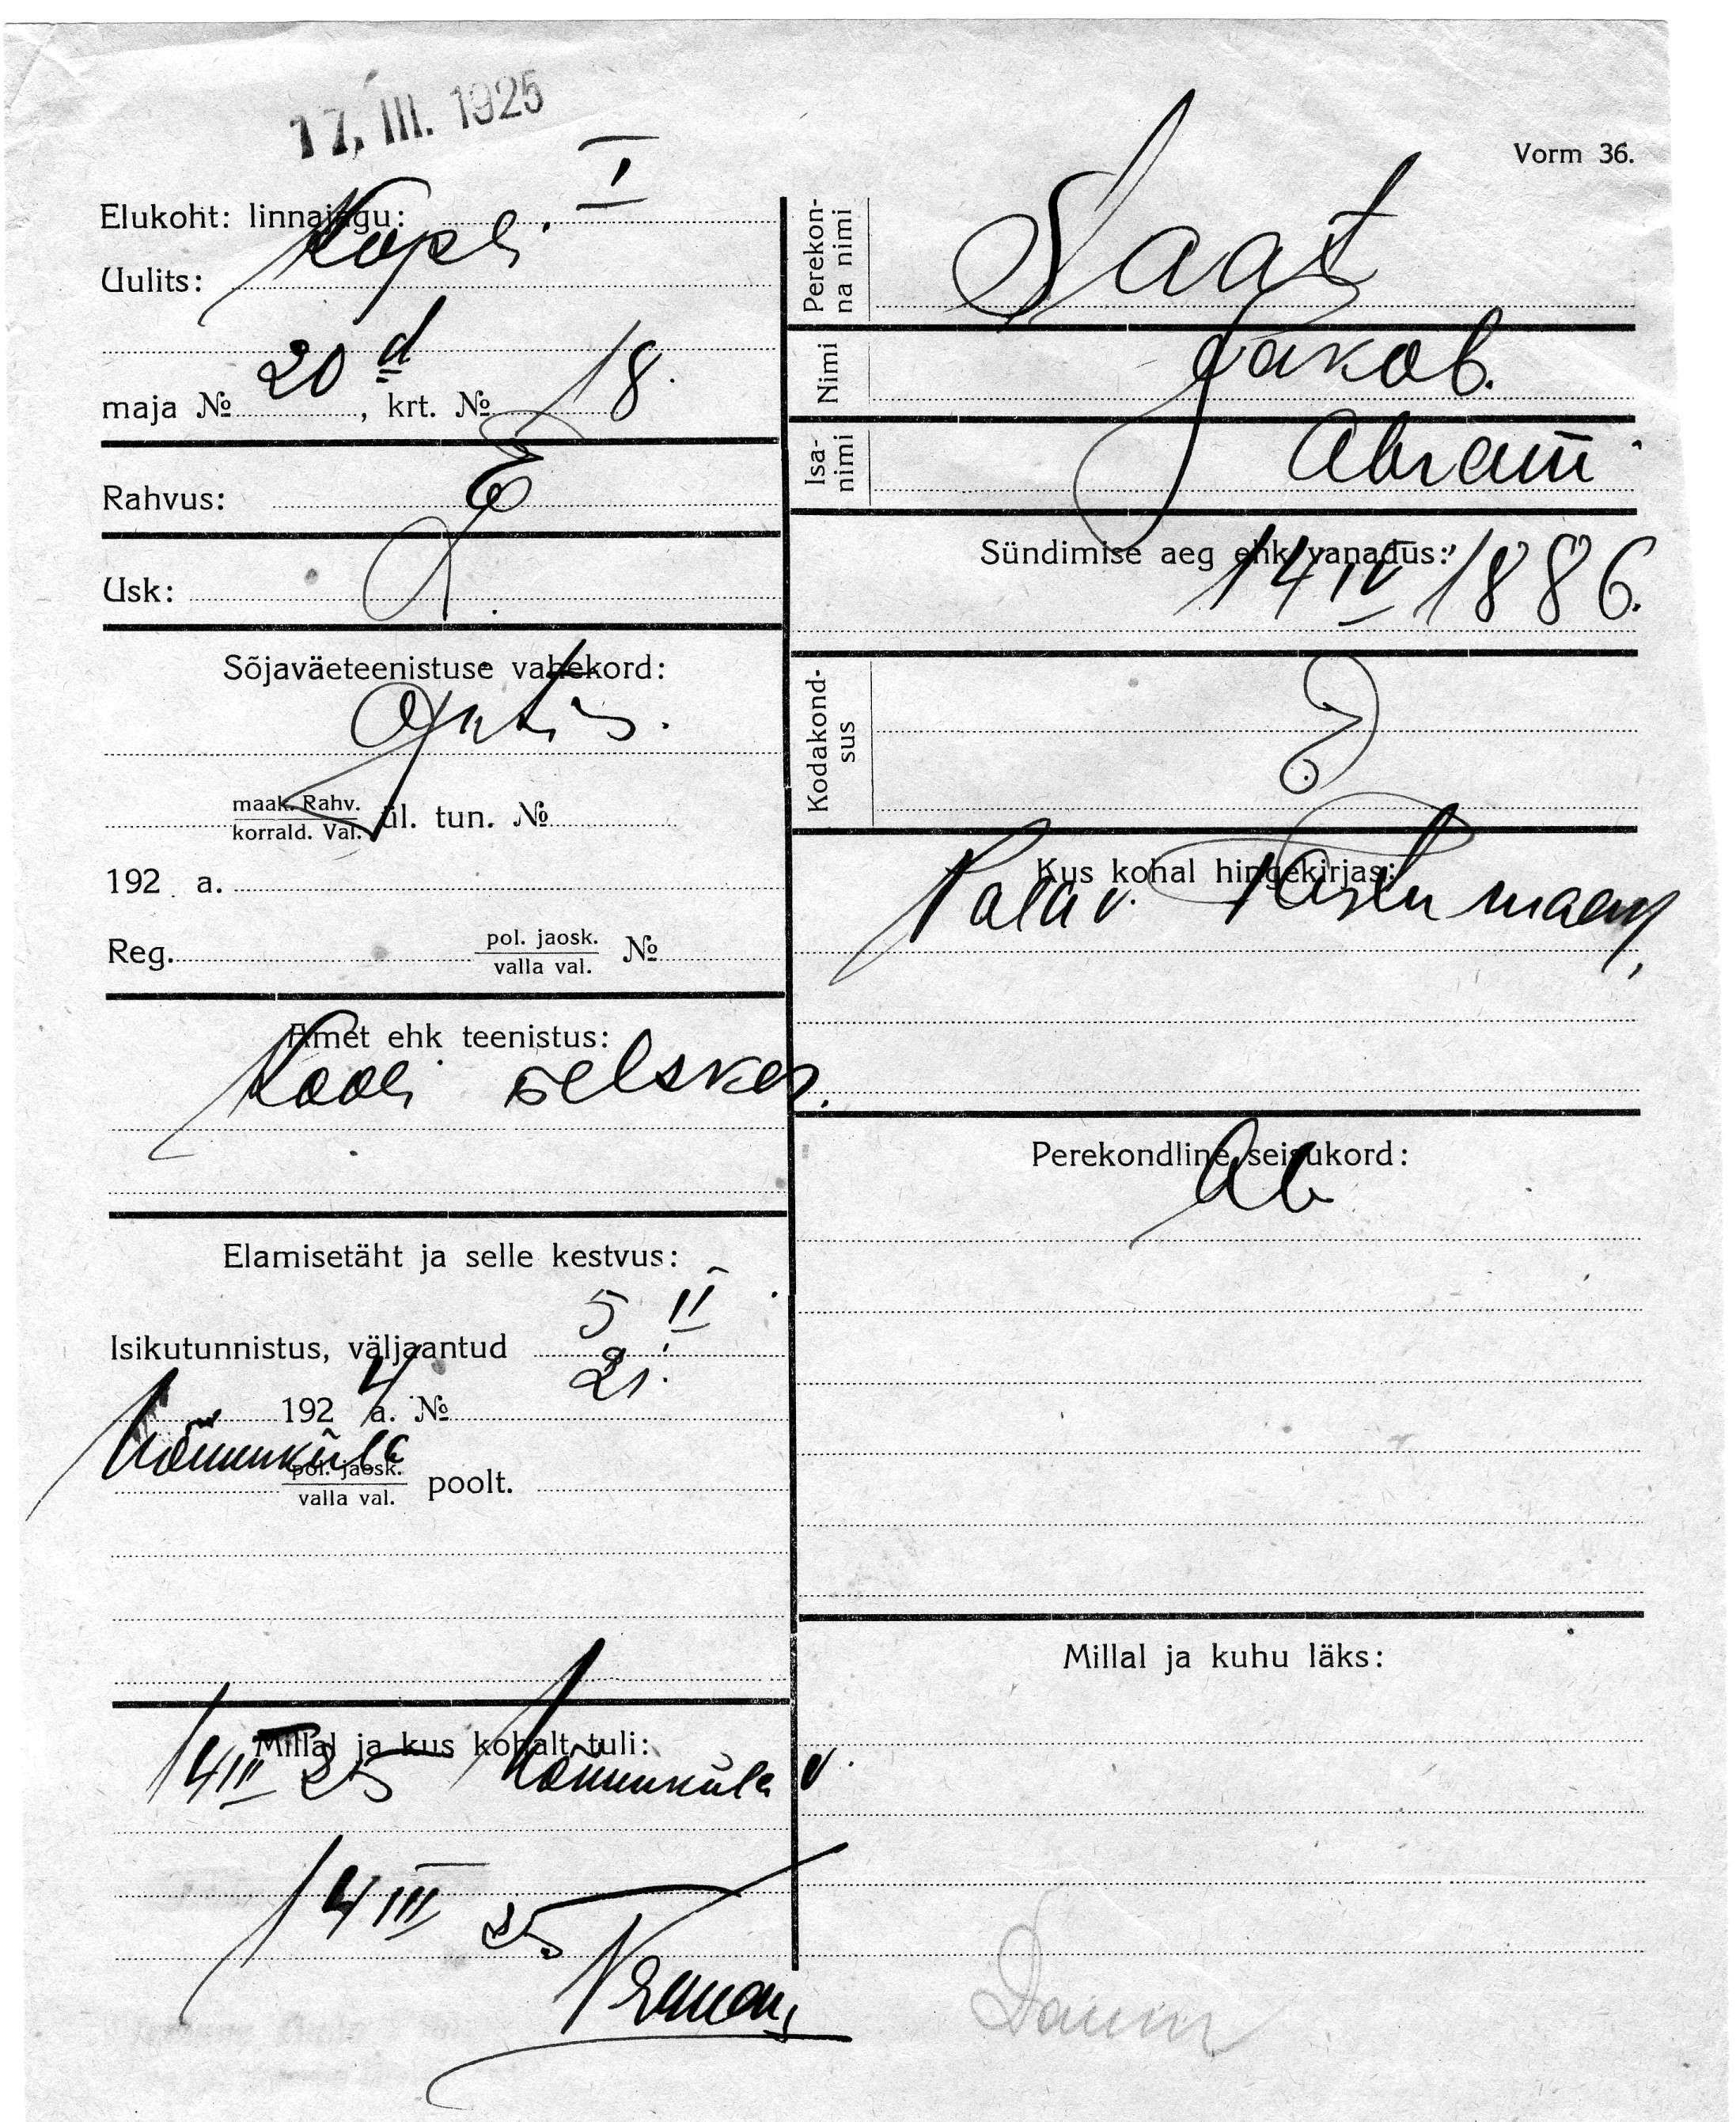 17. III. 1925
Vorm 36.
Elukoht: linnajagu: I
Uulits: Kopli
maja № 20 d, krt. № 18.
Rahvus: E
Usk:
Sõjaväeteenistuse vahekord:
maak. Rahv.
korrald. Val. ül. tun. №
192 a.
Reg. pol. jaosk.
valla val. №
Amet ehk teenistus:
Kooli
Elamisetäht ja selle kestvus:
Isikutunnistus, väljaantud 5 II
192 4 a. № 21.
Nõmmküla
pol. jaosk.
valla val. poolt.
Millal ja kus kohalt tuli:
14 III 25 Nõmmküla v.
14 III 25
Perekon-
na nimi Saat
Nimi Jakob.
Isa-
nimi Abram
Sündimise aeg ehk vanadus:
14 IV 1886.
Kodakond-
sus
Kus kohal hingekirjas:
Pala v. Tartu maa
Perekondline seisukord:
Ab
Millal ja kuhu läks: